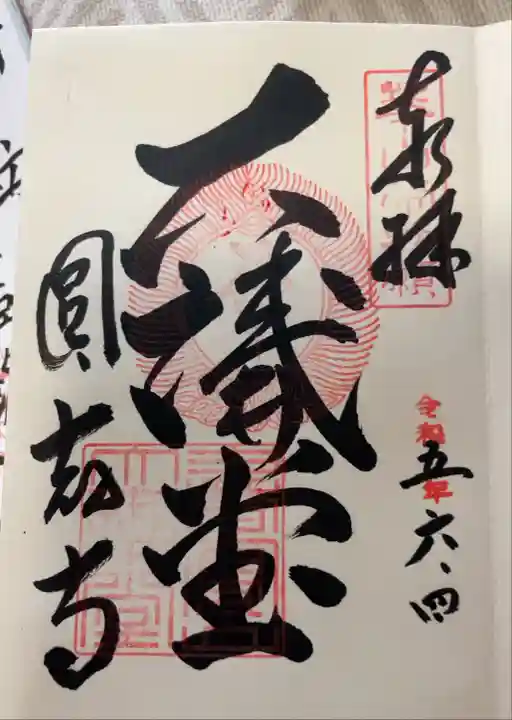 奉拝
大講堂
圓教寺
令和五年六、四